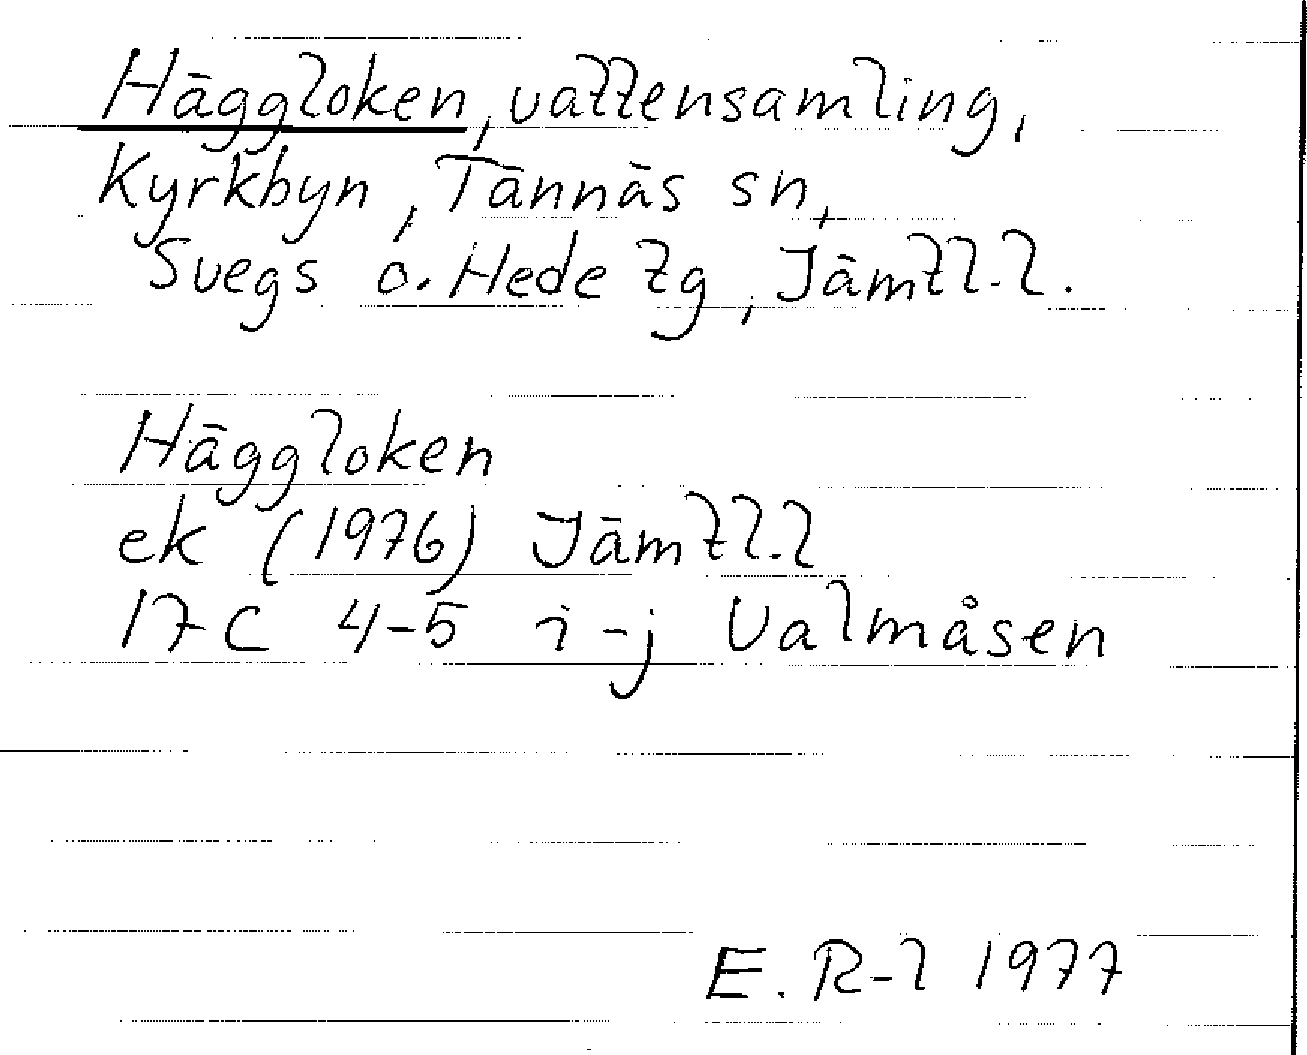 Häggloken, vattensamling,
Kyrkbyn, Tännäs sn,
Svegs o. Hede tg, Jämtl. l.
Häggloken
ek (1976) Jämtl. l
17C 4-5 i-j Valmåsen
E. R-l 1977